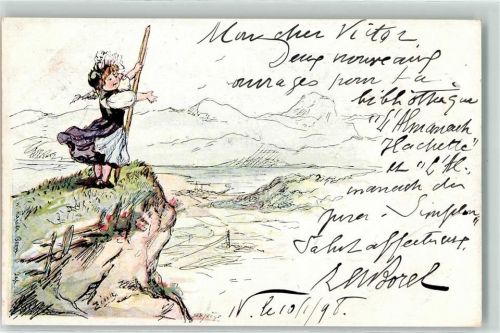 Mon cher Victor
Deux nouveaux
ouvrages pour ta
bibliothèque
"L'Almanach
Hachette"
et "l'Al-
manach du
Jura - Simplon"
Salut affectueux.
Borel
N. le 10/1/98.